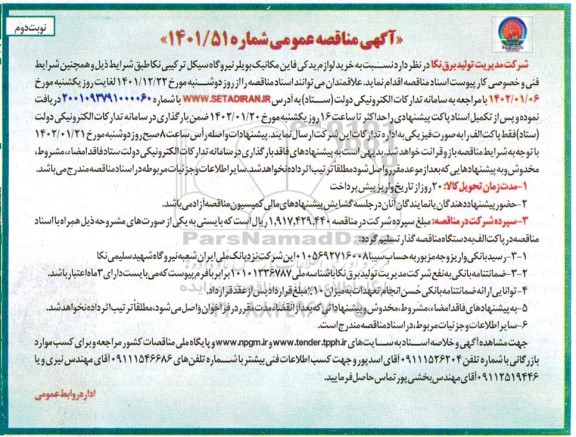 نوبت دوم
«آگهی مناقصه عمومی شماره ۱۴۰۱/۵۱»
شرکت مدیریت تولید برق نکا در نظر دارد نسبت به خرید لوازم یدکی فاین مکانیک بویلر نیروگاه سیکل ترکیبی نکا طبق شرایط ذیل و همچنین شرایط
فنی و خصوصی کار پیوست اسناد مناقصه اقدام نماید. علاقمندان می توانند اسناد مناقصه را از روز دوشنبه مورخ ۱۴۰۱/۱۲/۲۲ لغایت روز یکشنبه مورخ
۱۴۰۲/۰۱/۰۶ با مراجعه به سامانه تدارکات الکترونیکی دولت (ستاد) به آدرس WWW.SETADIRAN.IR با شماره ۲۰۰۱۰۹۳۷۹۱۰۰۰۰۶۰ دریافت
نموده و پس از تکمیل اسناد پاکت پیشنهادی را حداکثر تا ساعت ۱۶ روز یکشنبه مورخ ۱۴۰۲/۰۱/۲۰ ضمن بارگذاری در سامانه تدارکات الکترونیکی دولت
(ستاد) فقط پاکت الف را به صورت فیزیکی به اداره تدارکات این شرکت ارسال نمایند. پیشنهادات واصله رأس ساعت ۸ صبح روز دوشنبه مورخ ۱۴۰۲/۰۱/۲۱
با توجه به شرایط مناقصه باز و قرائت خواهد شد. بدیهی است به پیشنهادهای فاقد بارگذاری در سامانه تدارکات الکترونیکی دولت ستاد فاقد امضاء، مشروط،
مخدوش و به پیشنهادهایی که بعد از موعد مقرر واصل شود مطلقاً ترتیب اثر داده نخواهد شد. سایر اطلاعات و جزئیات مربوطه در اسناد مناقصه مندرج می باشد.
۱- مدت زمان تحویل کالا: ۲۰ روز از تاریخ واریز پیش پرداخت
۲- حضور پیشنهاد دهندگان یا نمایندگان آنان در جلسه گشایش پیشنهادهای مالی کمیسیون مناقصه آزاد می باشد.
۳- سپرده شرکت در مناقصه: مبلغ سپرده شرکت در مناقصه ۱,۹۱۷,۴۲۹,۴۴۰ ریال است که بایستی به یکی از صورت های مشروحه ذیل همراه با اسناد
مناقصه در پاکت الف به دستگاه مناقصه گذار تسلیم گردد:
۳-۱- رسید بانکی واریز وجه مزبور به حساب سیبا ۰۱۰۵۶۹۲۷۱۶۰۰۸ این شرکت نزد بانک ملی ایران شعبه نیروگاه شهید سلیمی نکا
۳-۲- ضمانتنامه بانکی به نفع شرکت مدیریت تولید برق نکا با شناسه ملی ۱۰۱۰۱۳۳۶۷۸۷ برابر با فرم پیوست که می بایست دارای ۳ ماه اعتبار باشد.
۴- توانایی ارائه ضمانتنامه بانکی حُسن انجام تعهدات به میزان ۱۰٪ مبلغ قرارداد پس از عقد قرارداد.
۵- به پیشنهادهای فاقد امضاء، مشروط، مخدوش و پیشنهاداتی که بعد از انقضاء مدت مقرر در فراخوان واصل می شود، مطلقاً ترتیب اثر داده نخواهد شد.
۶- سایر اطلاعات و جزئیات مربوط، در اسناد مناقصه مندرج است.
جهت مشاهده آگهی و خلاصه اسناد به سایت های www.tender.tpph.ir و www.npgm.ir و پایگاه ملی مناقصات کشور مراجعه و برای کسب موارد
بازرگانی با شماره تلفن ۰۹۱۱۱۵۲۶۲۰۴ آقای اسدپور و جهت کسب اطلاعات فنی بیشتر با شماره تلفن های ۰۹۱۱۱۵۴۶۶۸۶ آقای مهندس نیری و یا
۰۹۱۱۲۵۱۹۴۴۶ آقای مهندس بخشی پور تماس حاصل فرمایید.
اداره روابط عمومی